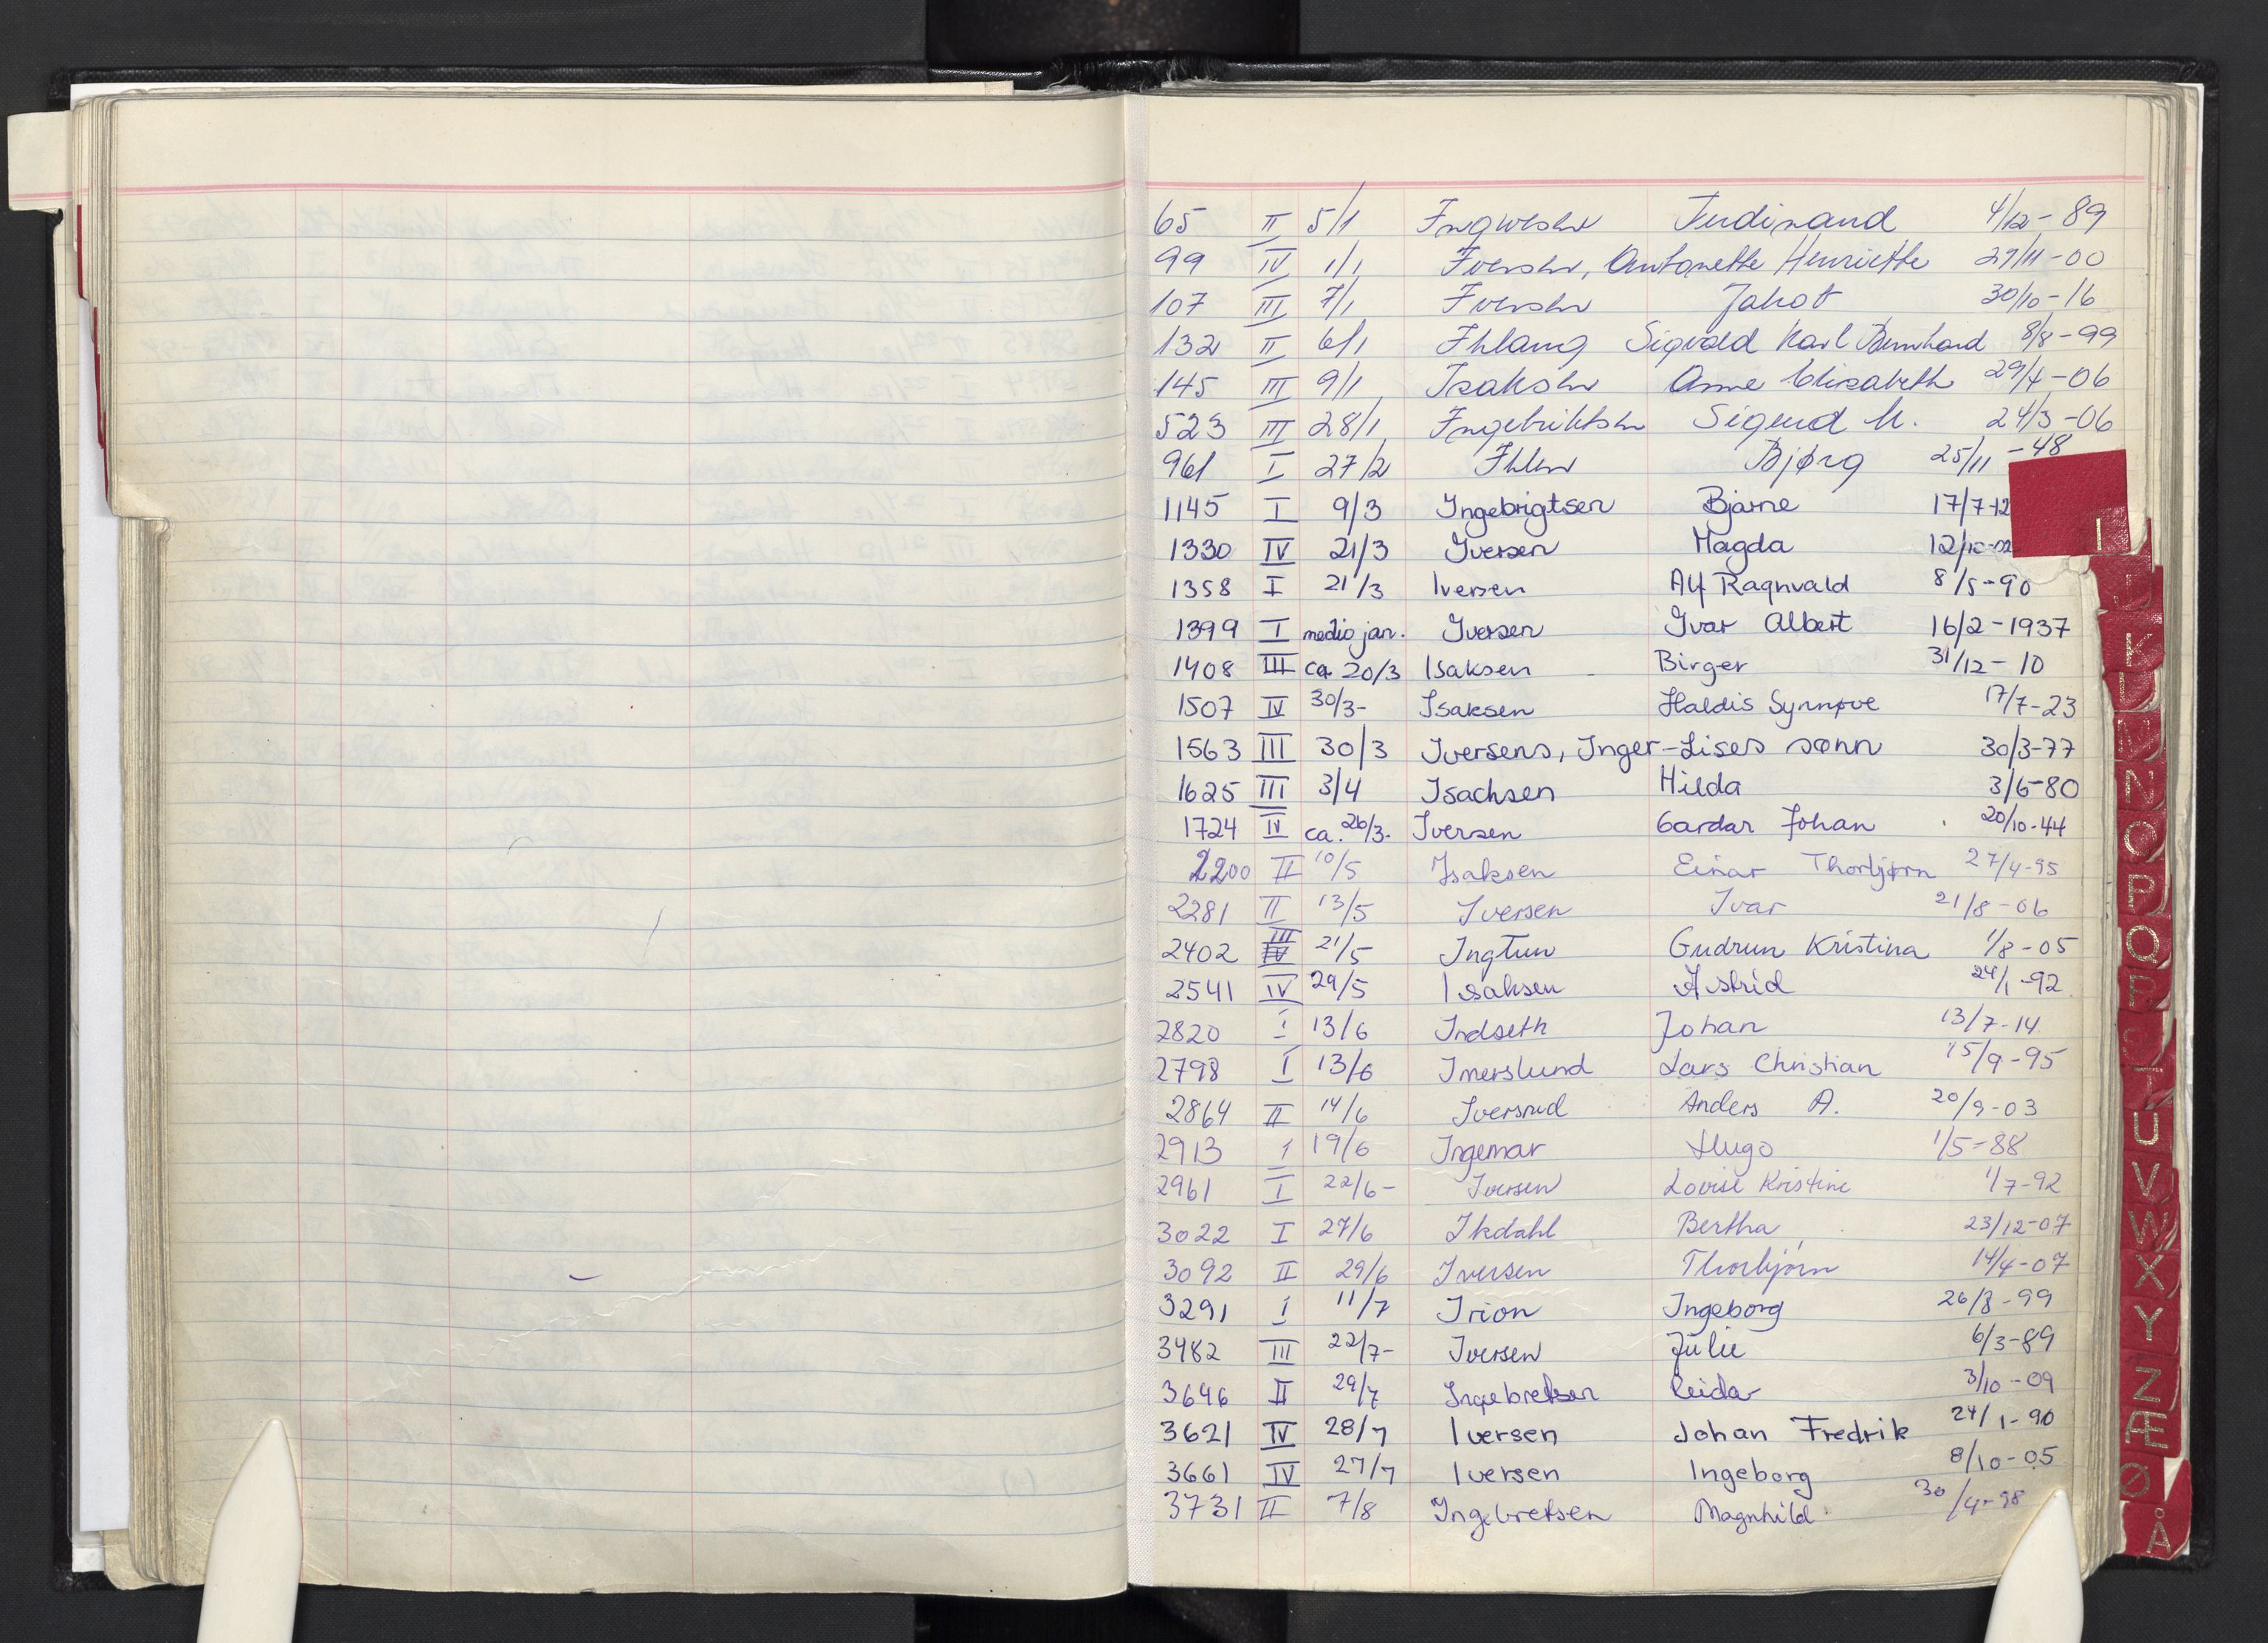 65 II 5/1 Ingwersen Ferdinand 4/12-89
99 IV 1/1 Iversen, Antonette Henriette 29/11-00
107 III 7/1 Iversen Jakob 30/10-16
132 II 6/1 Ihlang Sigvald Karl Bernhard 8/8-99
145 III 9/1 Isaksen Anne Elisabeth 29/4-06
523 III 28/1 Ingebriktsen Sigurd M. 24/3-06
961 I 27/2 Ihlen Bjørg 25/11-48
1145 I 9/3 Ingebrigtsen Bjarne 17/7-12
I
1330 IV 21/3 Iversen Magda 12/10-02
1358 I 21/3 Iversen Alf Ragnvald 8/5-90
J
1399 I medio jan. Iversen Ivar Albert 16/2-1937
K
1408 III ca 20/3 Isaksen Birger 31/12-10
L
1507 IV 30/3- Isaksen Haldis Synnøve 17/7-23
M
1563 III 30/3 Iversens, Inger-Lises sønn 30/3-77
N
1625 III 3/4 Isachsen Hilda 3/6-80
1724 IV ca. 26/3. Iversen Gardar Johan 20/10-44
O
2200 II 10/5 Isaksen Einar Thorbjørn 27/4-95
P
2281 II 13/5 Iversen Ivar 21/8-06
2402 III 21/5 Ingtun Gudrun Kristina 1/8-05
Q
2541 IV 29/5 Isaksen Astrid 24/1-92
R
2820 I 13/6 Indseth Johan 13/7-14
S
2798 I 13/6 Imerslund Lars Christian 15/9-95
T
2864 II 14/6 Iversrud Anders A. 20/9-03
U
2913 I 19/6 Ingemar Hugo 1/5-88
2961 I 22/6- Iversen Lovise Kristine 1/7-92
V
3022 I 27/6 Ikdahl Bertha 23/12-07
W
3092 II 29/6 Iversen Thorbjørn 14/4-07
X
3291 I 11/7 Irion Ingeborg 26/8-99
Y
3482 III 22/7- Iversen Julie 6/3-89
3646 II 29/7 Ingebretsen Reidar 3/10-09
Z
3621 IV 28/7 Iversen Johan Fredrik 24/1-90
Æ
3661 IV 27/7 Iversen Ingeborg 8/10-05
Ø
3731 II 7/8 Ingebretsen Magnhild 30/4-98
Å